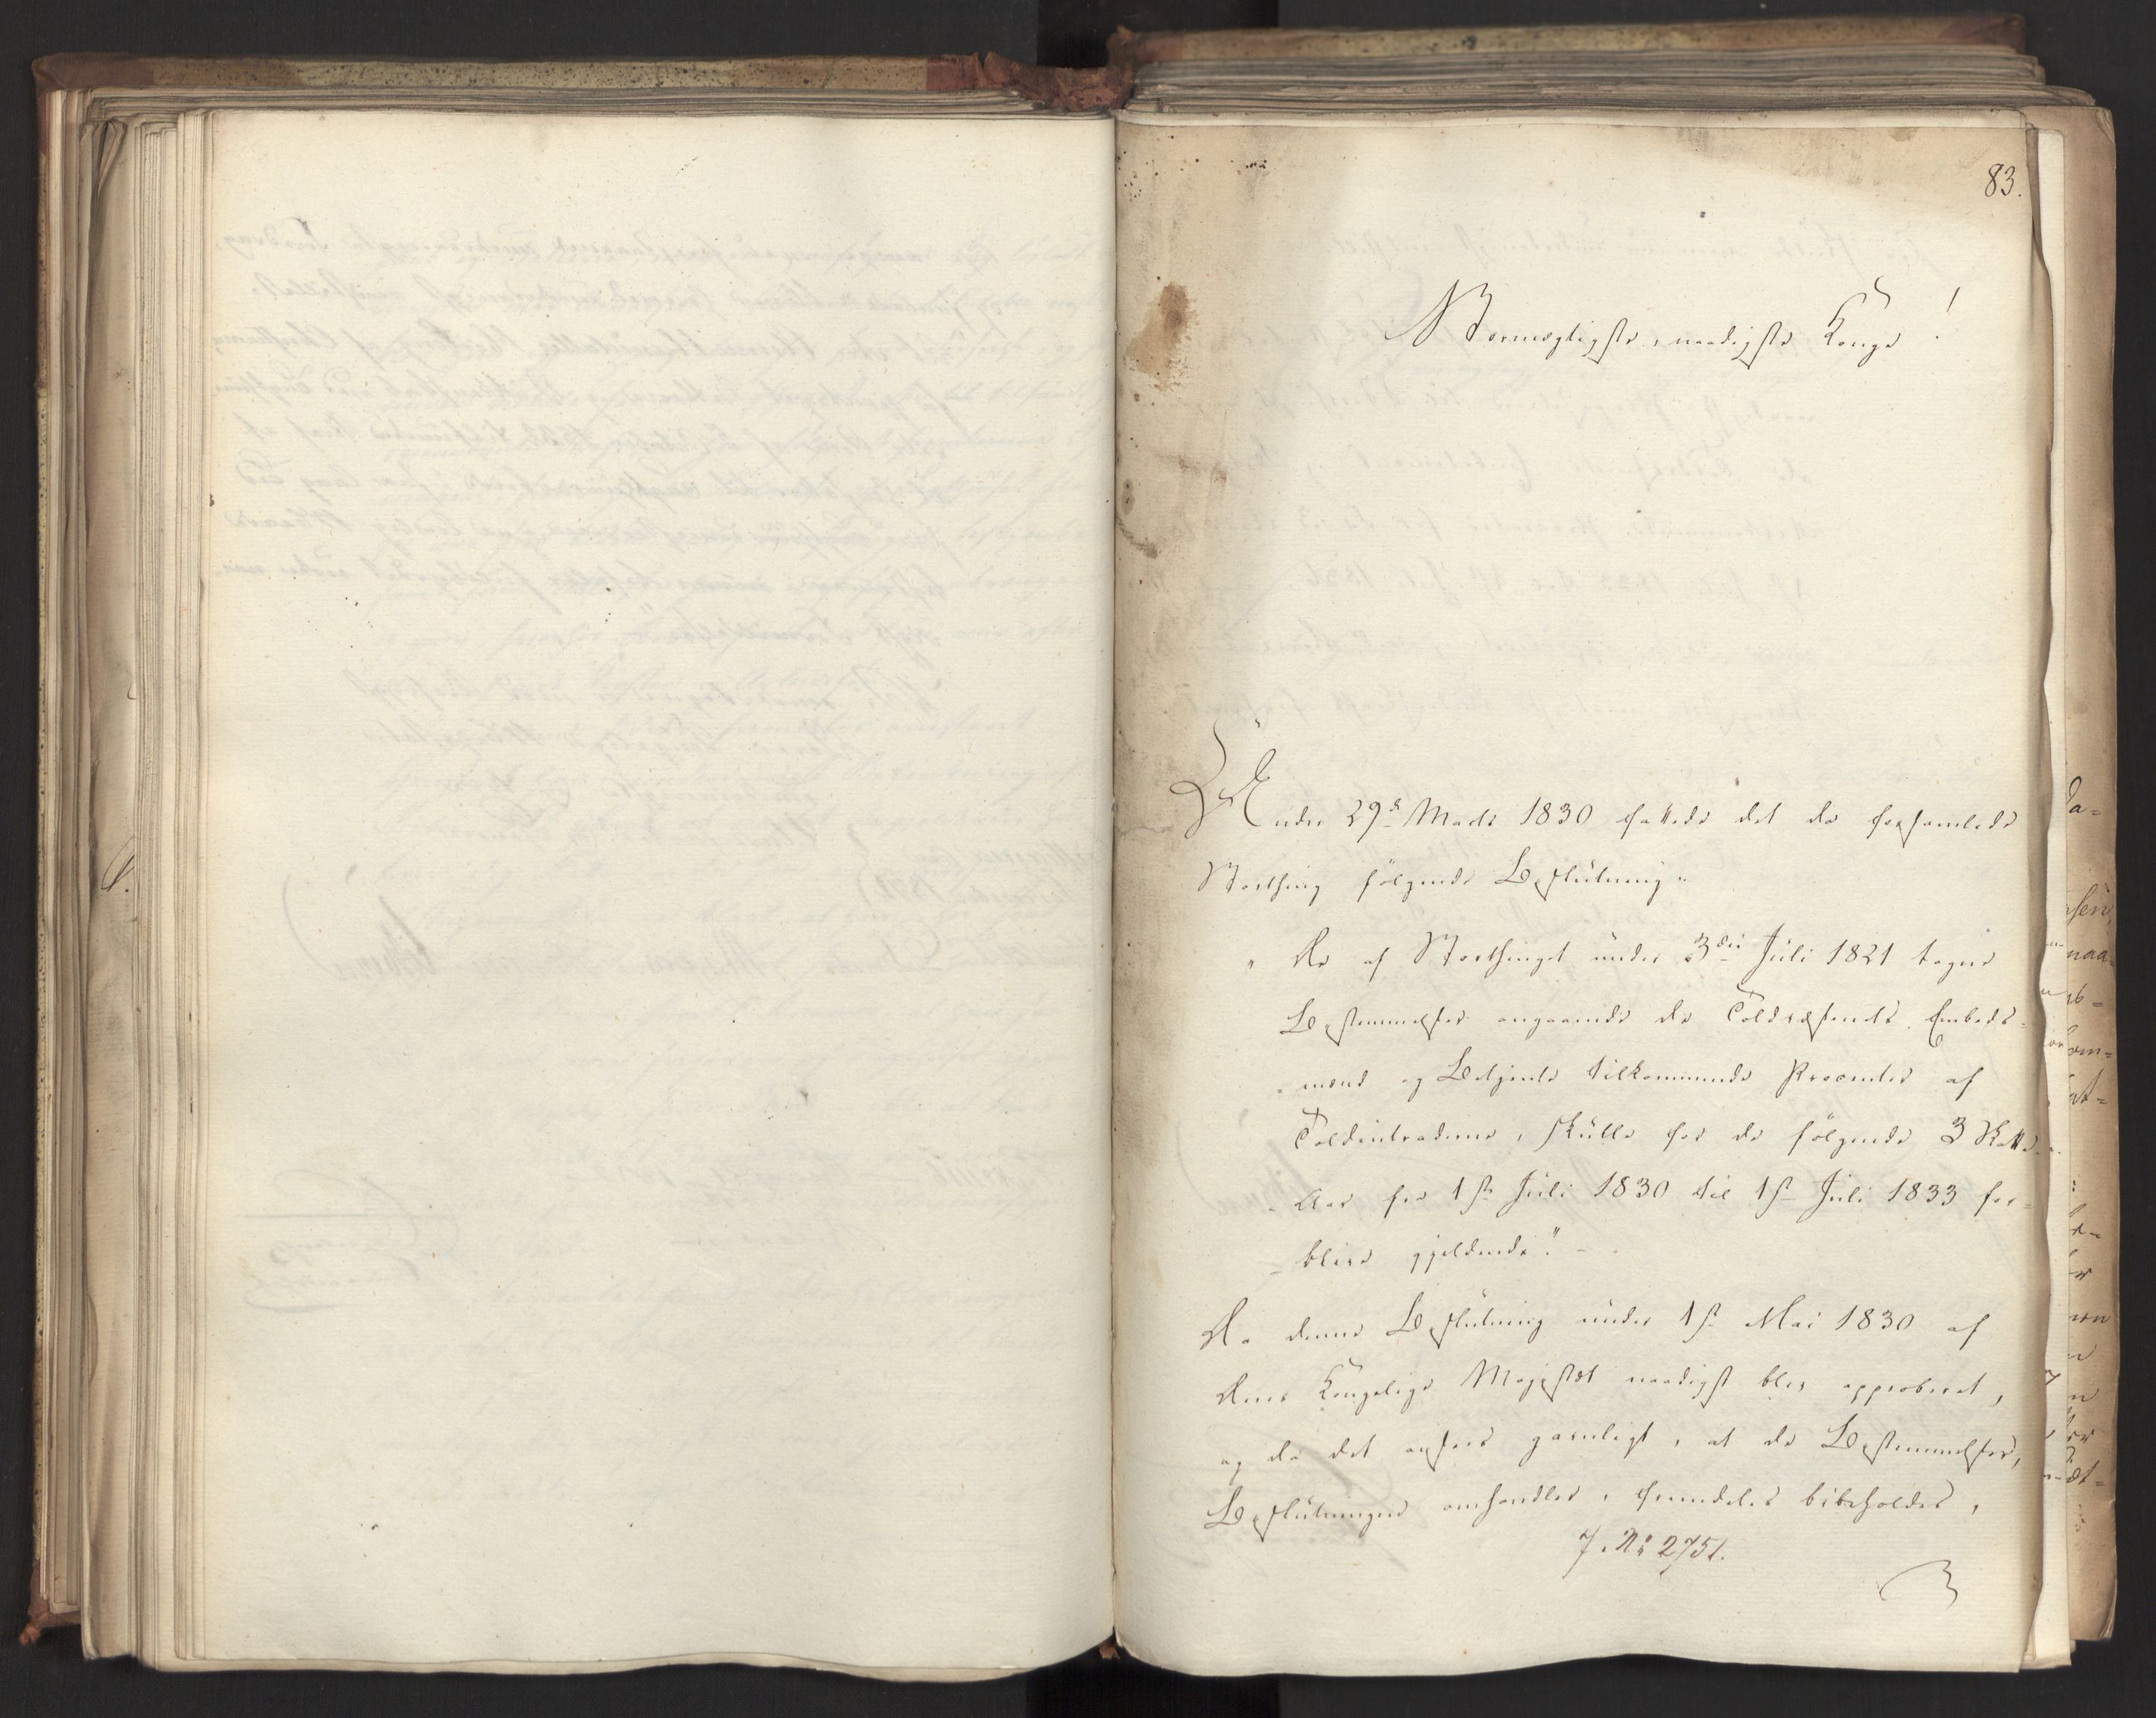 83.
Stormægtigste, naadigste Konge!
Under 29de Marts 1830 fattede det da forsamlede
Storthing følgende Beslutning:
"De af Storthinget under 3die Juli 1821 tagne
Bestemmelser angaaende de Toldvæsenets Embeds-
"mænd og Betjente tilkommende Procenter af
Toldintraderne, skulle for de følgende 3 Skatte-
"Aar fra 1ste Juli 1830 til 1ste Juli 1833 for-
"blive gjeldende." -
Da denne Beslutning under 1ste Mai 1830 af
Deres Kongelige Majestæt naadigst blev approberet,
og da det ansees gavnligt, at de Bestemmelser,
Beslutningen omhandler, fremdeles bibeholdes,
J. No 2751.